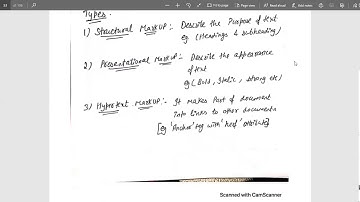 Types.
1) Structural MarkUP :- Describe the Purpose of text
eg (Headings & subheading)
2) Presentational MarkUP :- Describe the appearance
of text
eg (Bold, Italic, strong etc)
3) Hypertext MarkUP :- It makes Part of document
into links to other documents
[eg 'Anchor' tag with 'href' attribute]
Scanned with CamScanner